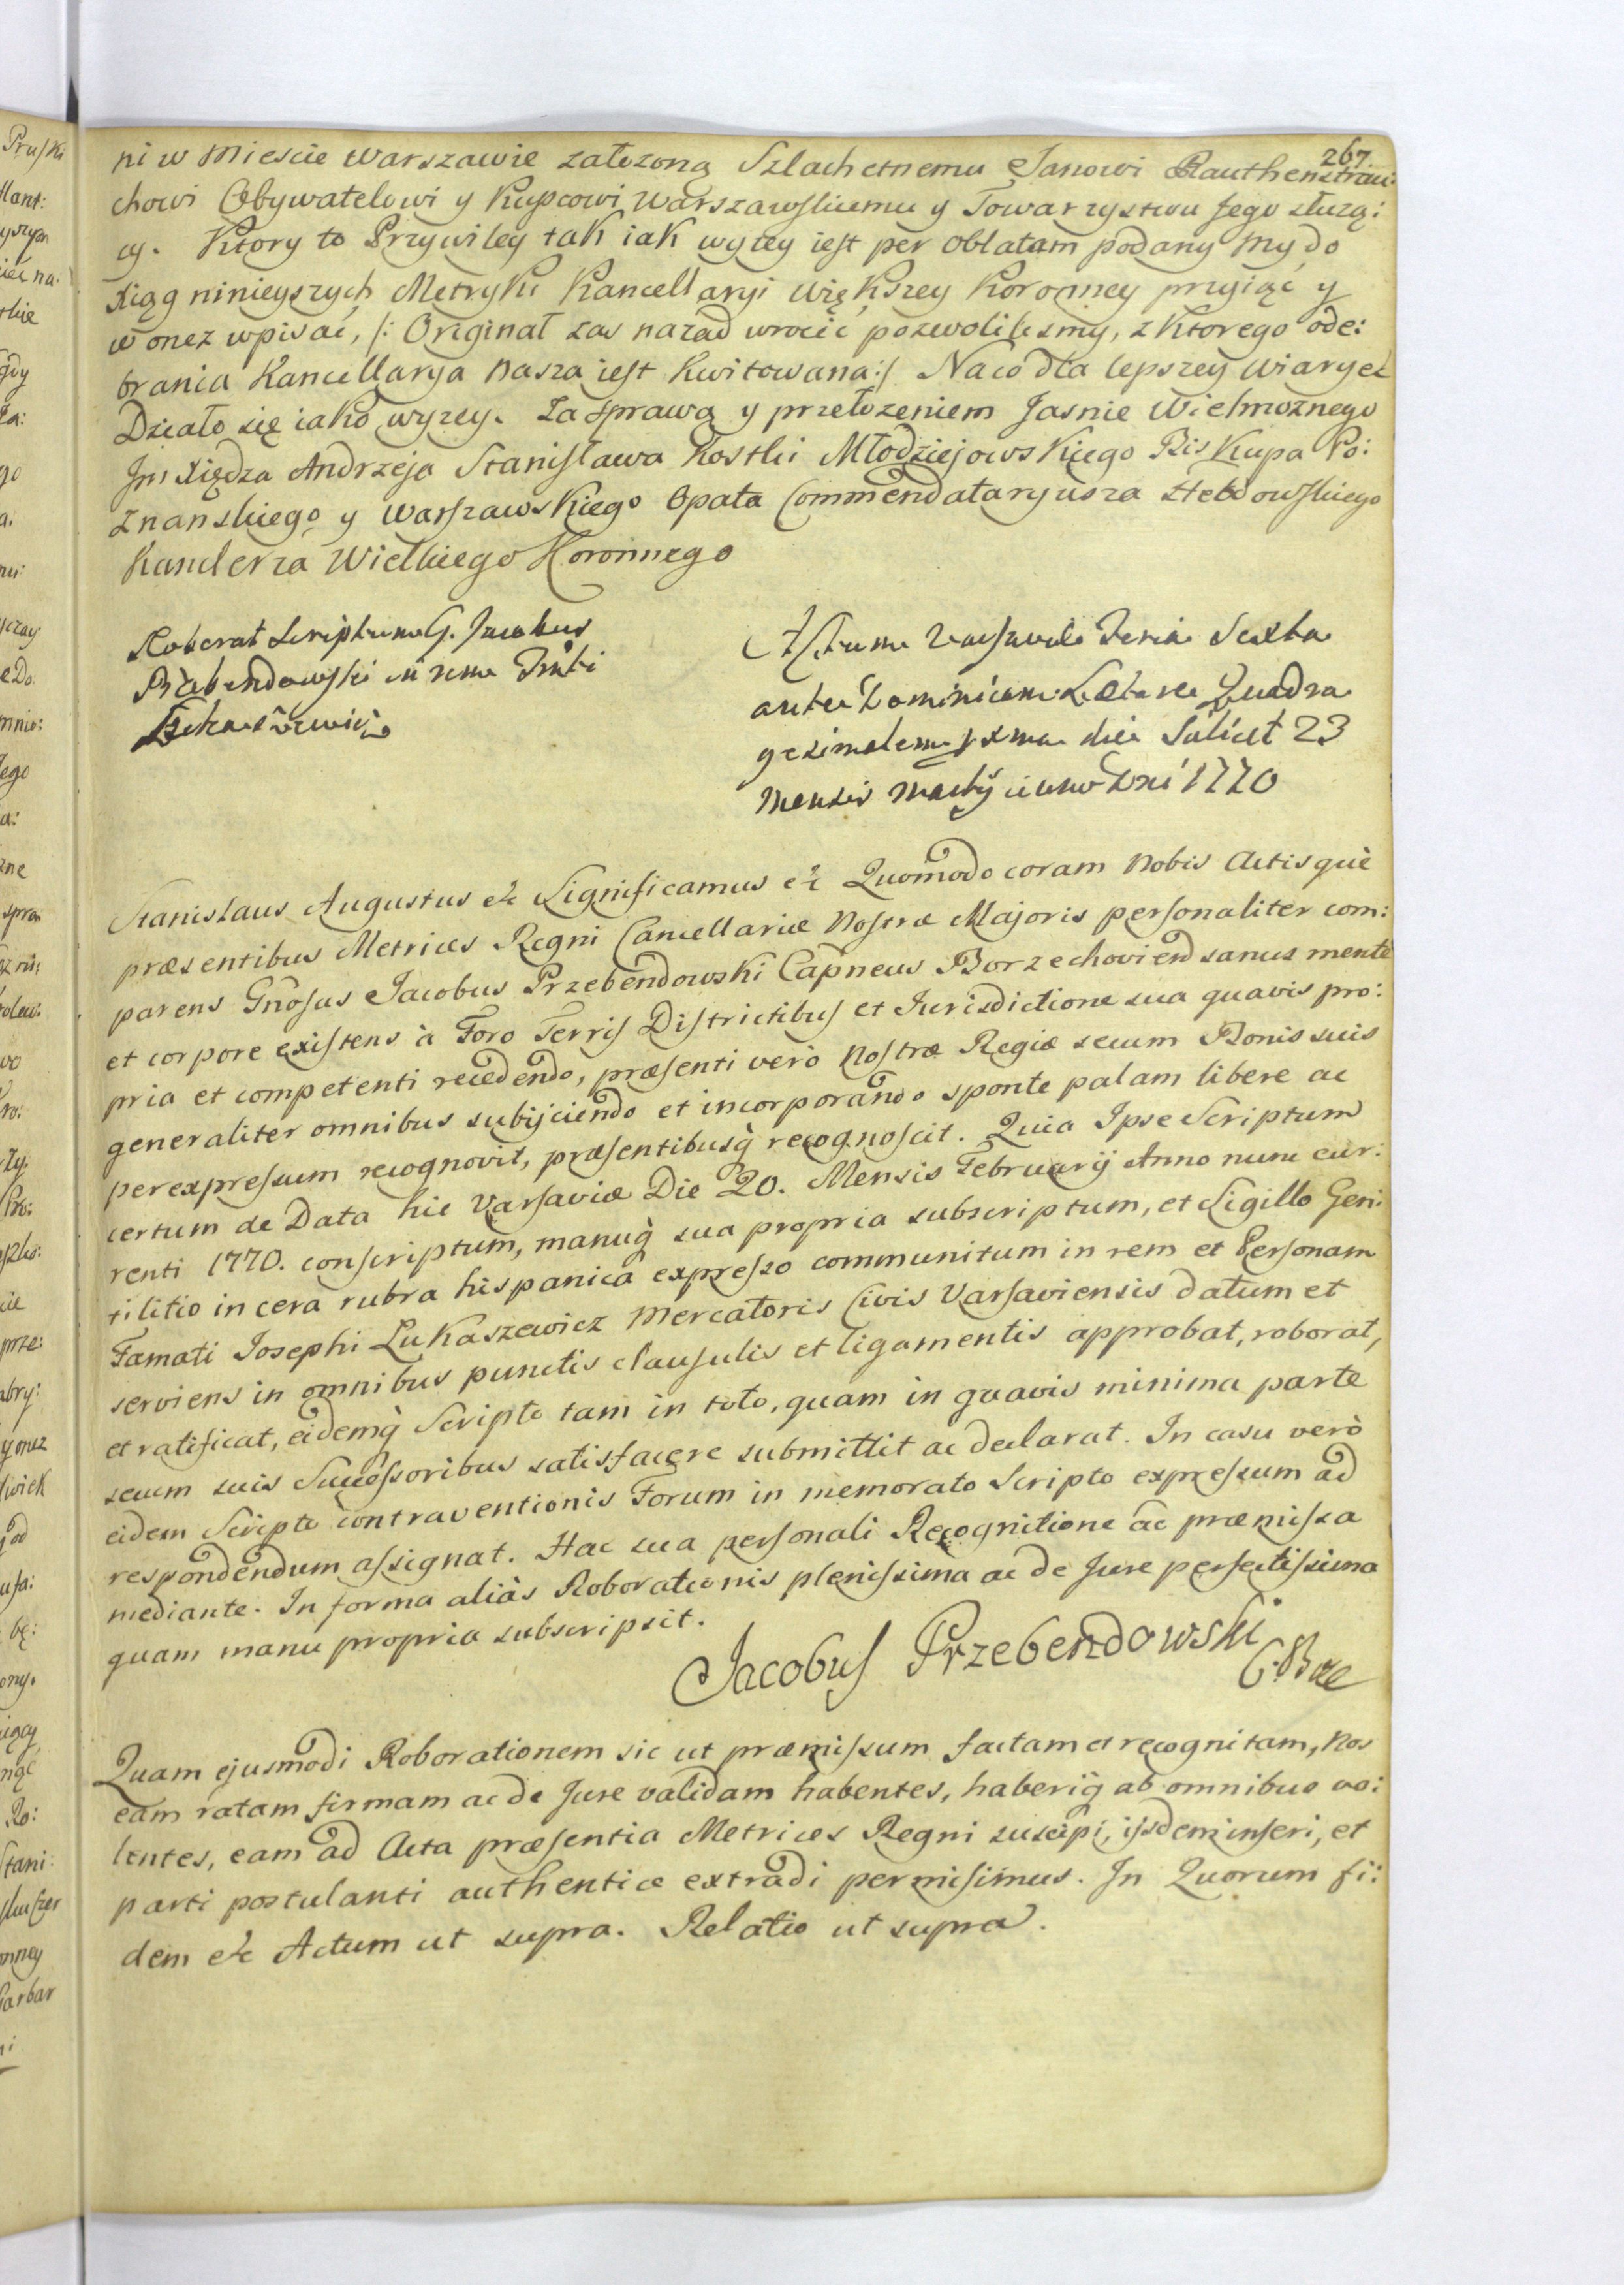 267.
ni w Miescie Warszawie załozoną Szlachetnemu Janowi Rauthenstrau:
chowi Obywatelowi y Kupcowi Warszawskiemu y Towarzystwu Jego służą:
cy. Ktory to Przywiley tak iak wyzey iest per Oblatam podany My do
Xiąg ninieyszych Metryki Kancellaryi Większey Koronney przyiąć y
w onez wpisać, /: Originał zas nazad wrocić pozwolilismy, z ktorego ode:
brania Kancellarya Nasza iest kwitowana:/ Na co dla lepszey Wiary etc
Działo się iako wyzey. Za sprawą y przełozeniem Jasnie Wielmoznego
Jm Xiędza Andrzeja Stanisława Kostki Młodziejowskiego Biskupa Po:
znanskiego y Warszawskiego Opata Commendataryusza Hebdowskiego
Kanclerza Wielkiego Koronnego
Roborat Scriptum G. Jacobus
Przebendowski in rem Fmti
Łukaszewicz
Actum Varsaviæ Feria Sexta
ante Dominicam Lætare Quadra
gesimalem pxma die Scilicet 23
Mensis Martij anno Dni 1770
Stanislaus Augustus etc Significamus etc Quomodo coram Nobis Actisque
præsentibus Metrices Regni Cancellariæ Nostræ Majoris personaliter com:
parens Gnosus Jacobus Przebendowski Capneus Borzechoviens sanus mente
et corpore existens à Foro Terris Districtibus et Jurisdictione sua quavis pro:
pria et competenti recedendo, præsenti verò Nostræ Regiæ secum Bonis suis
generaliter omnibus subijciendo et incorporando sponte palam libere ac
per expressum recognovit, præsentibusq̀ recognoscit. Quia Ipse Scriptum
certum de Data hic Varsaviæ Die 20. Mensis Februarij Anno nunc cur:
renti 1770. conscriptum, manuq̀ sua propria subscriptum, et Sigillo Gen:
tilitio in cera rubra hispanica expresso communitum in rem et Personam
Famati Josephi Łukaszewicz Mercatoris Civis Varsaviensis datum et
serviens in omnibus punctis clausulis et ligamentis approbat, roborat,
et ratificat, eidemq̀ Scripto tam in toto, quam in quavis minima parte
secum suis Successoribus satisfacere submittit ac declarat. In casu verò
eidem Scripto contraventionis Forum in memorato Scripto expressum ad
respondendum assignat. Hac sua personali Recognitione ac præmissa
mediante. In forma aliàs Roborationis plenissima ac de Jure perfectissima
quam manu propria subscripsit.
Jacobus Przebendowski
Quam ejusmodi Roborationem sic ut præmissum factam et recognitam, Nos
eam ratam firmam ac de Jure validam habentes, haberiq̀ ab omnibus vo:
lentes, eam ad Acta præsentia Metrices Regni suscipi, ijsdem inseri, et
parti postulanti authentice extradi permisimus. In Quorum fi:
dem etc Actum ut supra. Relatio ut supra.